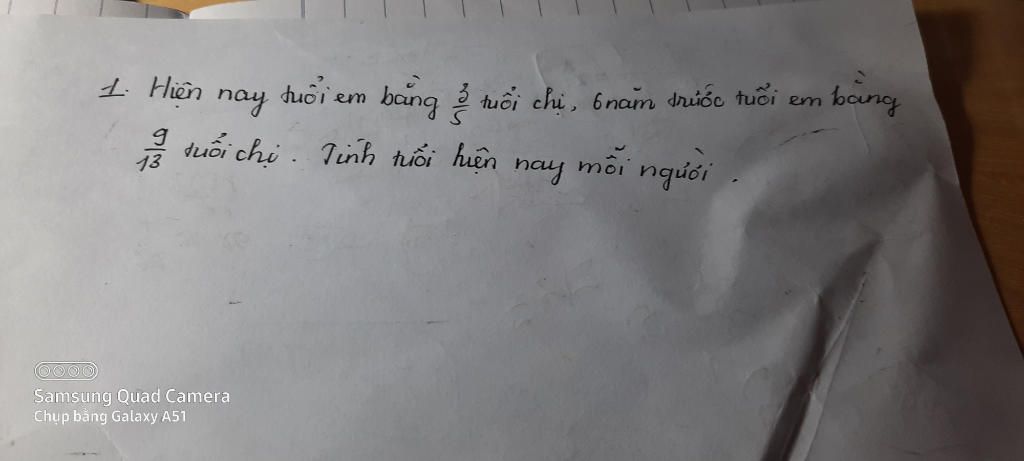 1. Hiện nay tuổi em bằng 3/5 tuổi chị, 6 năm trước tuổi em bằng
9/13 tuổi chị. Tính tuổi hiện nay mỗi người.
Samsung Quad Camera
Chụp bằng Galaxy A51